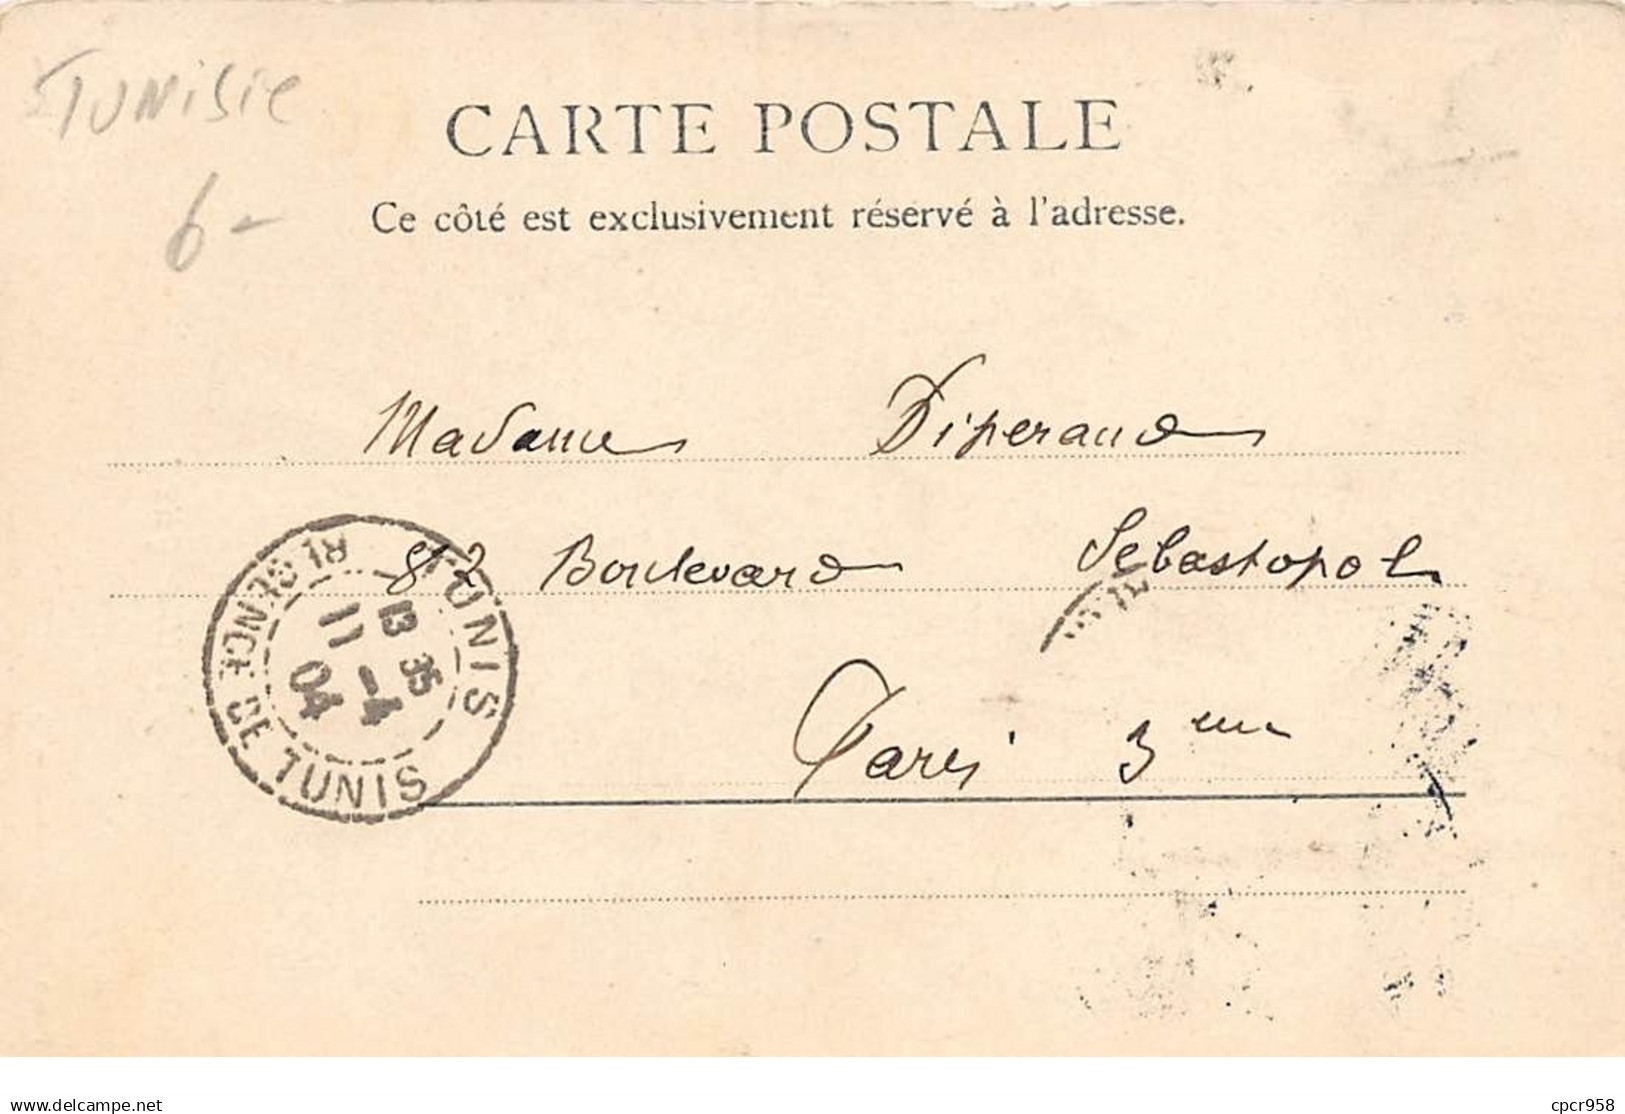 Tunisie
6-
CARTE POSTALE
Ce côté est exclusivement réservé à l'adresse.
Madame Diperaud
82 Boulevard Sebastopol
Paris 3me
TUNIS
RÉGENCE DE TUNIS
13 35
11 -4
04
delcampe.net
cpcr958